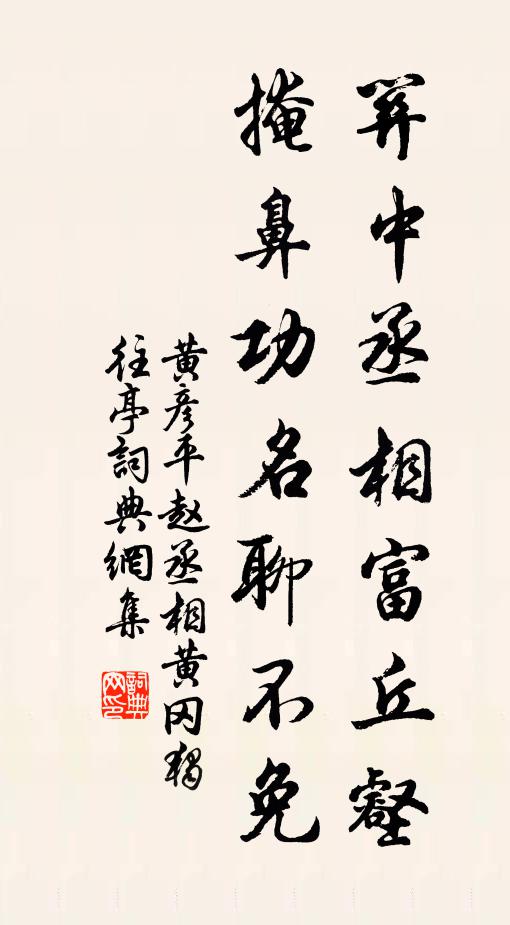 中丞相富丘壑
掩鼻功名聊不免
黄彦平赵丞相黄冈獨
往亭詞典網集
詞典网印